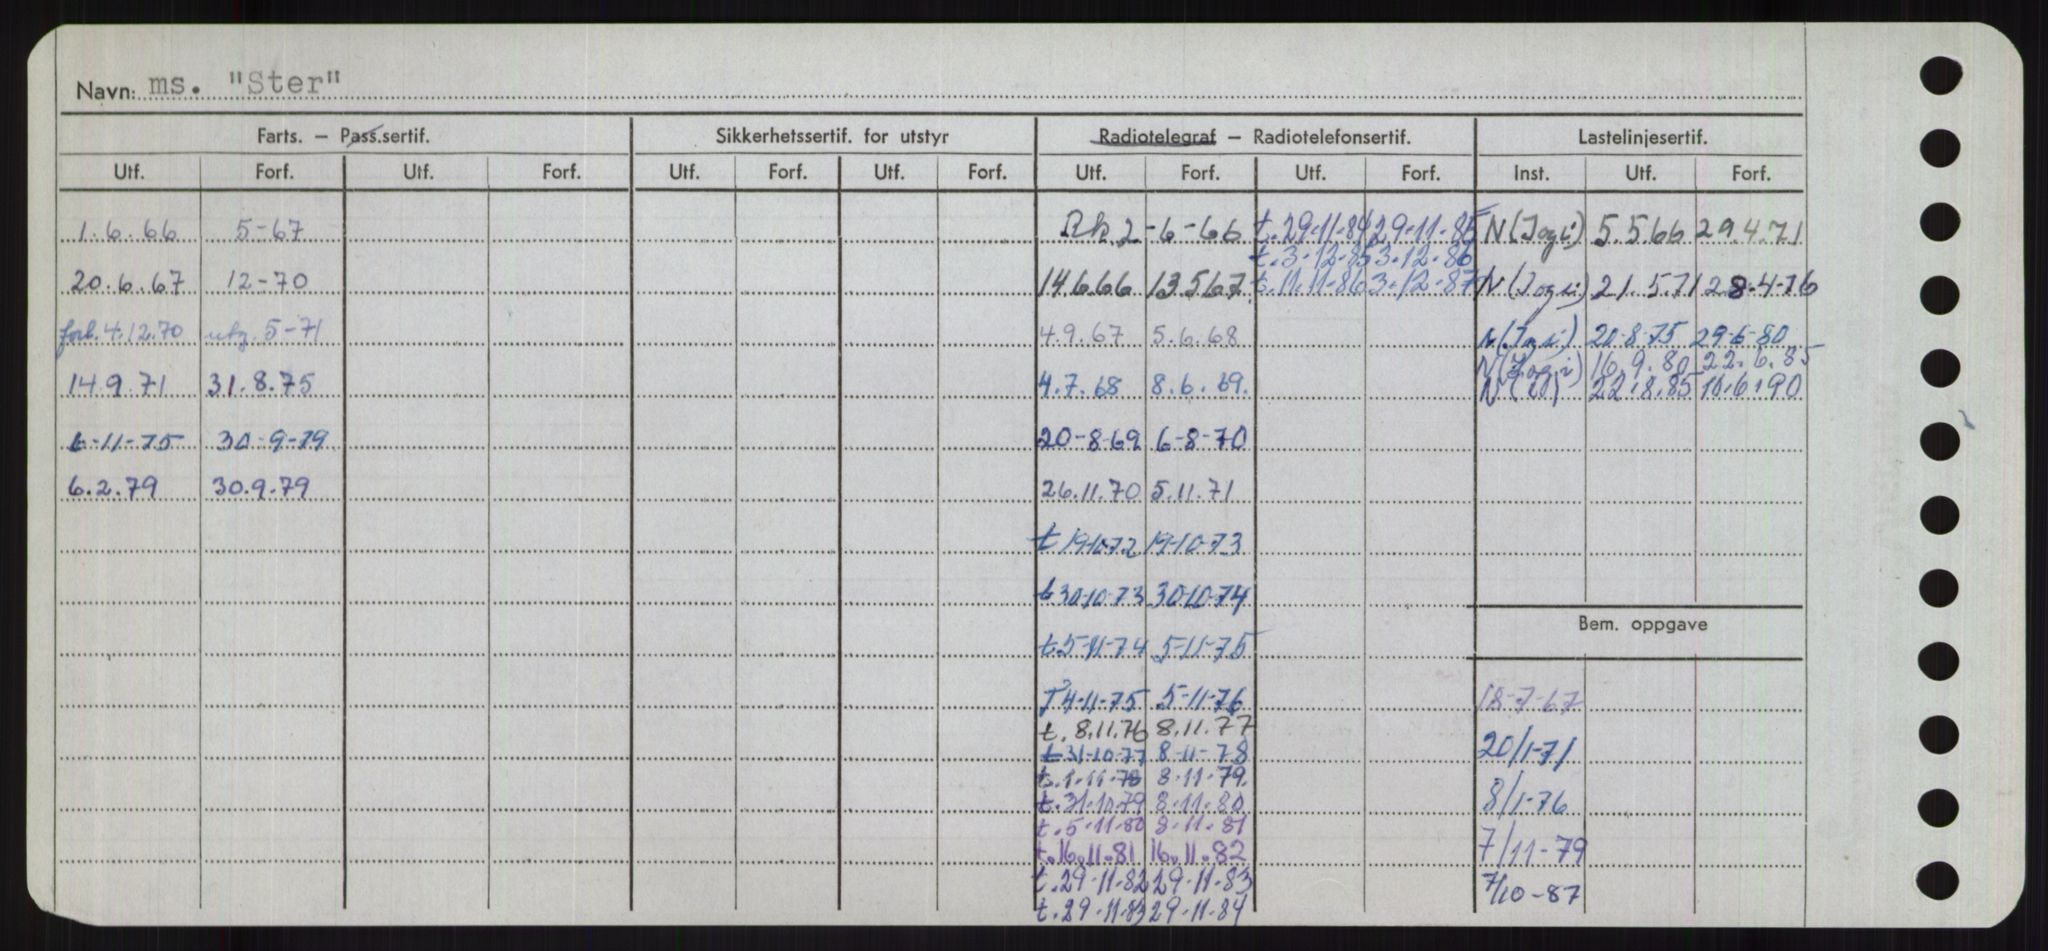 Navn: ms. "Ster"
Farts. — Pass.sertif. Sikkerhetssertif. for utstyr Radiotelegraf — Radiotelefonsertif. Lastelinjesertif.
Utf. Forf. Utf. Forf. Utf. Forf. Utf. Forf. Utf. Forf. Utf. Forf. Inst. Utf. Forf.
1.6.66 5-67 Rk. 2-6-66 t.29-11-84 29-11-85 N(Iogi) 5.5.66 29.4.71
t.3-12-85 3.12.86
20.6.67 12-70 14.6.66 13.5.67 t.11.11-86 3-12-87 N(Iogi) 21.5.71 28-4-76
forl. 4.12.70 utg. 5-71 4.9.67 5.6.68 N(Iogi) 20-8-75 29-6-80
N(Iogi) 16.9.80 22.6.85
14.9.71 31.8.75 4.7.68 8.6.69. N 22.8.85 10.6.90
6-11-75 30-9-79 20-8-69 6-8-70
6.2.79 30.9.79 26.11.70 5.11.71
t 19-10-72 19-10-73
t 30-10-73 30-10-74
t.5-11-74 5-11-75
Bem. oppgave
T 4-11-75 5-11-76 18-7-67
t. 8.11.76 8.11.77
t 31-10-77 8-11-78 20/1-71
t.1-11-78 8-11-79.
t.31-10-79 8-11-80 8/1-76
t.5-11-80 8-11-81
t.16.11.81 16.11.82 7/11-79
t.29-11-82 29-11-83 7/10-87
t.29-11-83 29-11-84